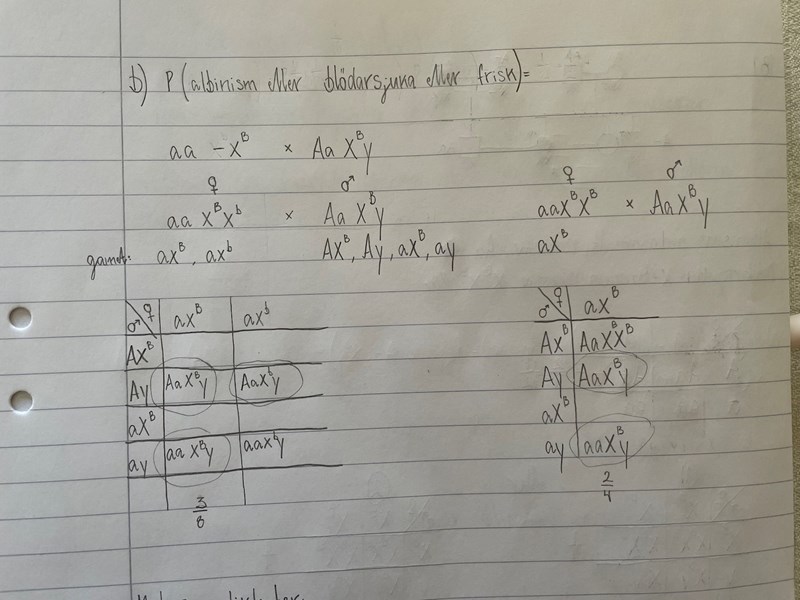 b) P (albinism eller blödarsjuka eller frisk) =
aa - X^B × Aa X^B y
♀ ♂
aa X^B X^b × Aa X^B y
gamet: aX^B, aX^b AX^B, Ay, aX^B, ay
♀ ♂
aaX^B X^B × AaX^B y
aX^B
♂ ♀ aX^B aX^b
AX^B
Ay AaX^B y AaX^b y
aX^B
ay aa X^B y aaX^b y
3/8
♂ ♀ aX^B
AX^B AaX^B X^B
Ay AaX^B y
aX^B
ay aaX^B y
2/4